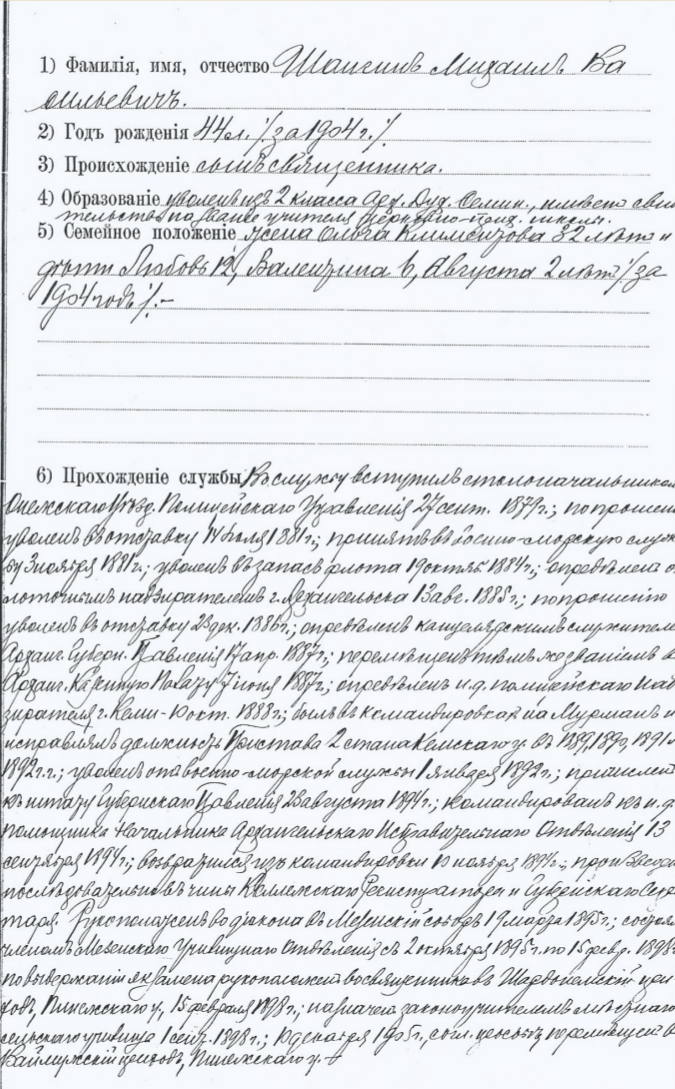 1) Фамилія, имя, отчество Шангинъ Михаилъ Ва
сильевичъ.
2) Годъ рожденія 44 л. /за 1904 г./
3) Происхожденіе сынъ священника.
4) Образованіе уволенъ изъ 2 класса Арх. Дух. Семин., имѣетъ свид
тельство на званіе учителя церковно-прих. школы.
5) Семейное положеніе жена Ольга Климентова 32 лѣтъ и
дѣти Любовь 12, Валентина 6, Августа 2 лѣтъ /за
1904 годъ/.-
6) Прохожденіе службы Въ службу вступилъ столоначальником
Онежскаго Уѣзд. Полицейскаго Управленія 27 сент. 1879 г.; по прошен
уволенъ въ отставку 14 іюля 1881 г.; принятъ въ военно-морскую служ
бу 3 ноября 1881 г.; уволенъ въ запасъ флота 19 октяб 1884 г.; опредѣленъ о
лоточнымъ надзирателемъ г. Архангельска 13 авг. 1885 г.; по прошенію
уволенъ въ отставку 23 дек. 1886 г.; опредѣленъ канцелярскимъ служителе
Арханг. Губерн. Правленія 17 апр. 1887 г.; перемѣщенъ тѣмъ же званіемъ в
Арханг. Казенную Палату 7 іюня 1887 г.; опредѣленъ и.д. полицейскаго над
зирателя г. Кеми - 10 окт. 1888 г.; былъ въ командировкѣ на Мурманъ и
исправлялъ должность Пристава 2 стана Кемскаго у. въ 1889, 1890, 1891 и
1892 г.г.; уволенъ отъ военно-морской службы 1 января 1892 г.; причислен
къ штату Губернскаго Правленія 28 августа 1894 г.; командированъ къ и.д.
помощника Начальника Архангельскаго Исправительнаго Отдѣленія 13
сентября 1894 г.; возвратился изъ командировки 10 ноября 1894 г.; произведен
послѣдовательно въ чины Коллежскаго Регистратора и Губернскаго Секре
таря. Рукоположенъ во діакона въ Мезенскій соборъ 19 марта 1895 г.; состоял
членомъ Мезенскаго Училищнаго Отдѣленія съ 2 октября 1895 г. по 15 февр. 1898 г
по выдержаніи экзамена рукоположенъ во священника въ Шардонемскій при
ходъ, Пинежскаго у, 15 февраля 1898 г.; назначенъ законоучителемъ мѣстнаго
сельскаго училища 1 сент. 1898 г.; 10 декабря 1905 г., согл. прошенію перемѣщенъ в
Ваймужскій приходъ, Пинежскаго у. -